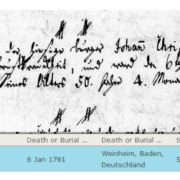 der hiesige burger Johann Chri
und ward den 6
seines Alters 50. Jahr 4. Mona
Death or Burial ... Death or Burial ... S
6 Jan 1791 Weinheim, Baden, Deutschland S